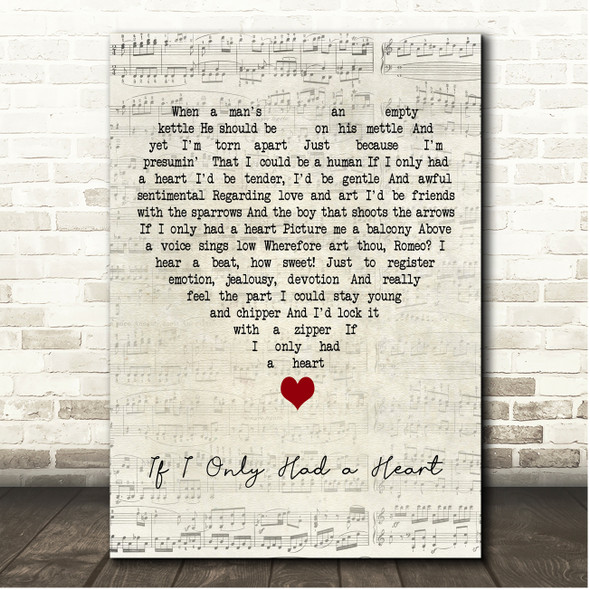 When a man's an empty
kettle He should be on his mettle And
yet I'm torn apart Just because I'm
presumin' That I could be a human If I only had
a heart I'd be tender, I'd be gentle And awful
sentimental Regarding love and art I'd be friends
with the sparrows And the boy that shoots the arrows
If I only had a heart Picture me a balcony Above
a voice sings low Wherefore art thou, Romeo? I
hear a beat, how sweet! Just to register
emotion, jealousy, devotion And really
feel the part I could stay young
and chipper And I'd lock it
with a zipper If
I only had
a heart
If I Only Had a Heart